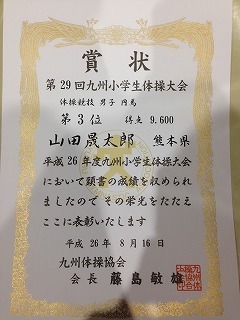 賞状
第29回九州小学生体操大会
体操競技 男子 円馬
第3位 得点 9.600
山田晟太郎 熊本県
平成26年度九州小学生体操大会
において頭書の成績を収められ
ましたので その栄光をたたえ
ここに表彰いたします
平成 26年 8月16日
九州体操協会
会長 藤島敏雄